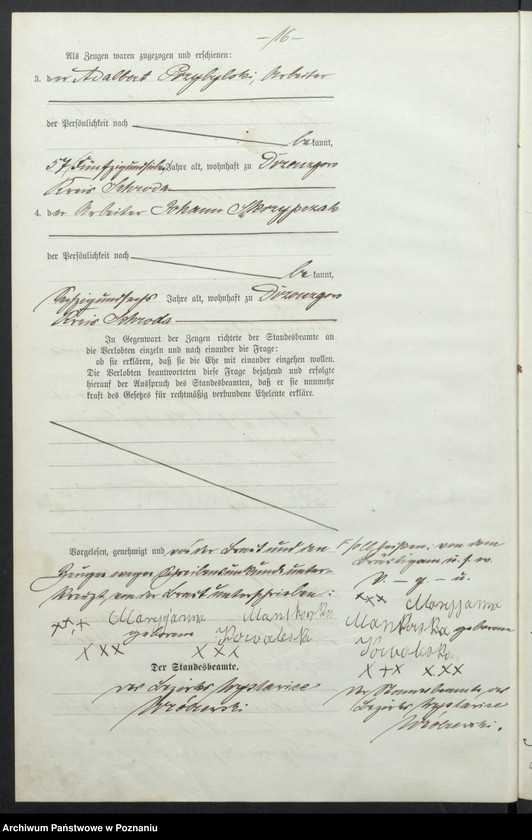 -16-
Als Zeugen waren zugezogen und erschienen:
3. der Adalbert Przybylski, Arbeiter
der Persönlichkeit nach
be kannt,
57, Jahre alt, wohnhaft zu
Kreis Schroda
4. der Arbeiter Johann Skrzypczak
der Persönlichkeit nach
be kannt,
Sechzigundsechs Jahre alt, wohnhaft zu
Kreis Schroda
In Gegenwart der Zeugen richtete der Standesbeamte an
die Verlobten einzeln und nach einander die Frage:
ob sie erklären, daß sie die Ehe mit einander eingehen wollen.
Die Verlobten beantworteten diese Frage bejahend und erfolgte
hierauf der Ausspruch des Standesbeamten, daß er sie nunmehr
kraft des Gesetzes für rechtmäßig verbundene Eheleute erkläre.
Vorgelesen, genehmigt und von der Braut und den
Zeugen wegen Schreibensunkunde unter-
kreuzt, von der Braut unterschrieben:
+++ Maryjanna Mankoska
geborene Kowalska
XXX XXX
Der Standesbeamte.
Wróblewski
F soll heißen: von dem
Bräutigam u.s.w.
V. – g. – u.
xxx Maryjanna
Mankoska geborene
Kowalska
X+X X.XX
Der Standesbeamte des
Wróblewski.
Archiwum Państwowe w Poznaniu